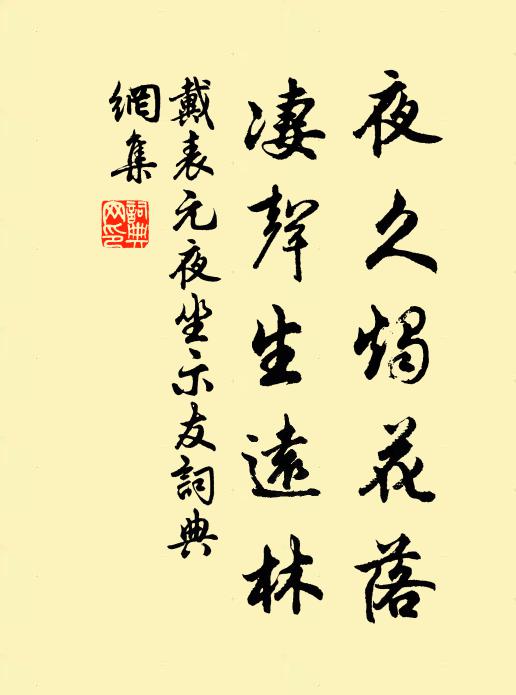 夜久燭花落
凄聲生遠林
戴表元夜坐示友詞典
網集
詞典
网印